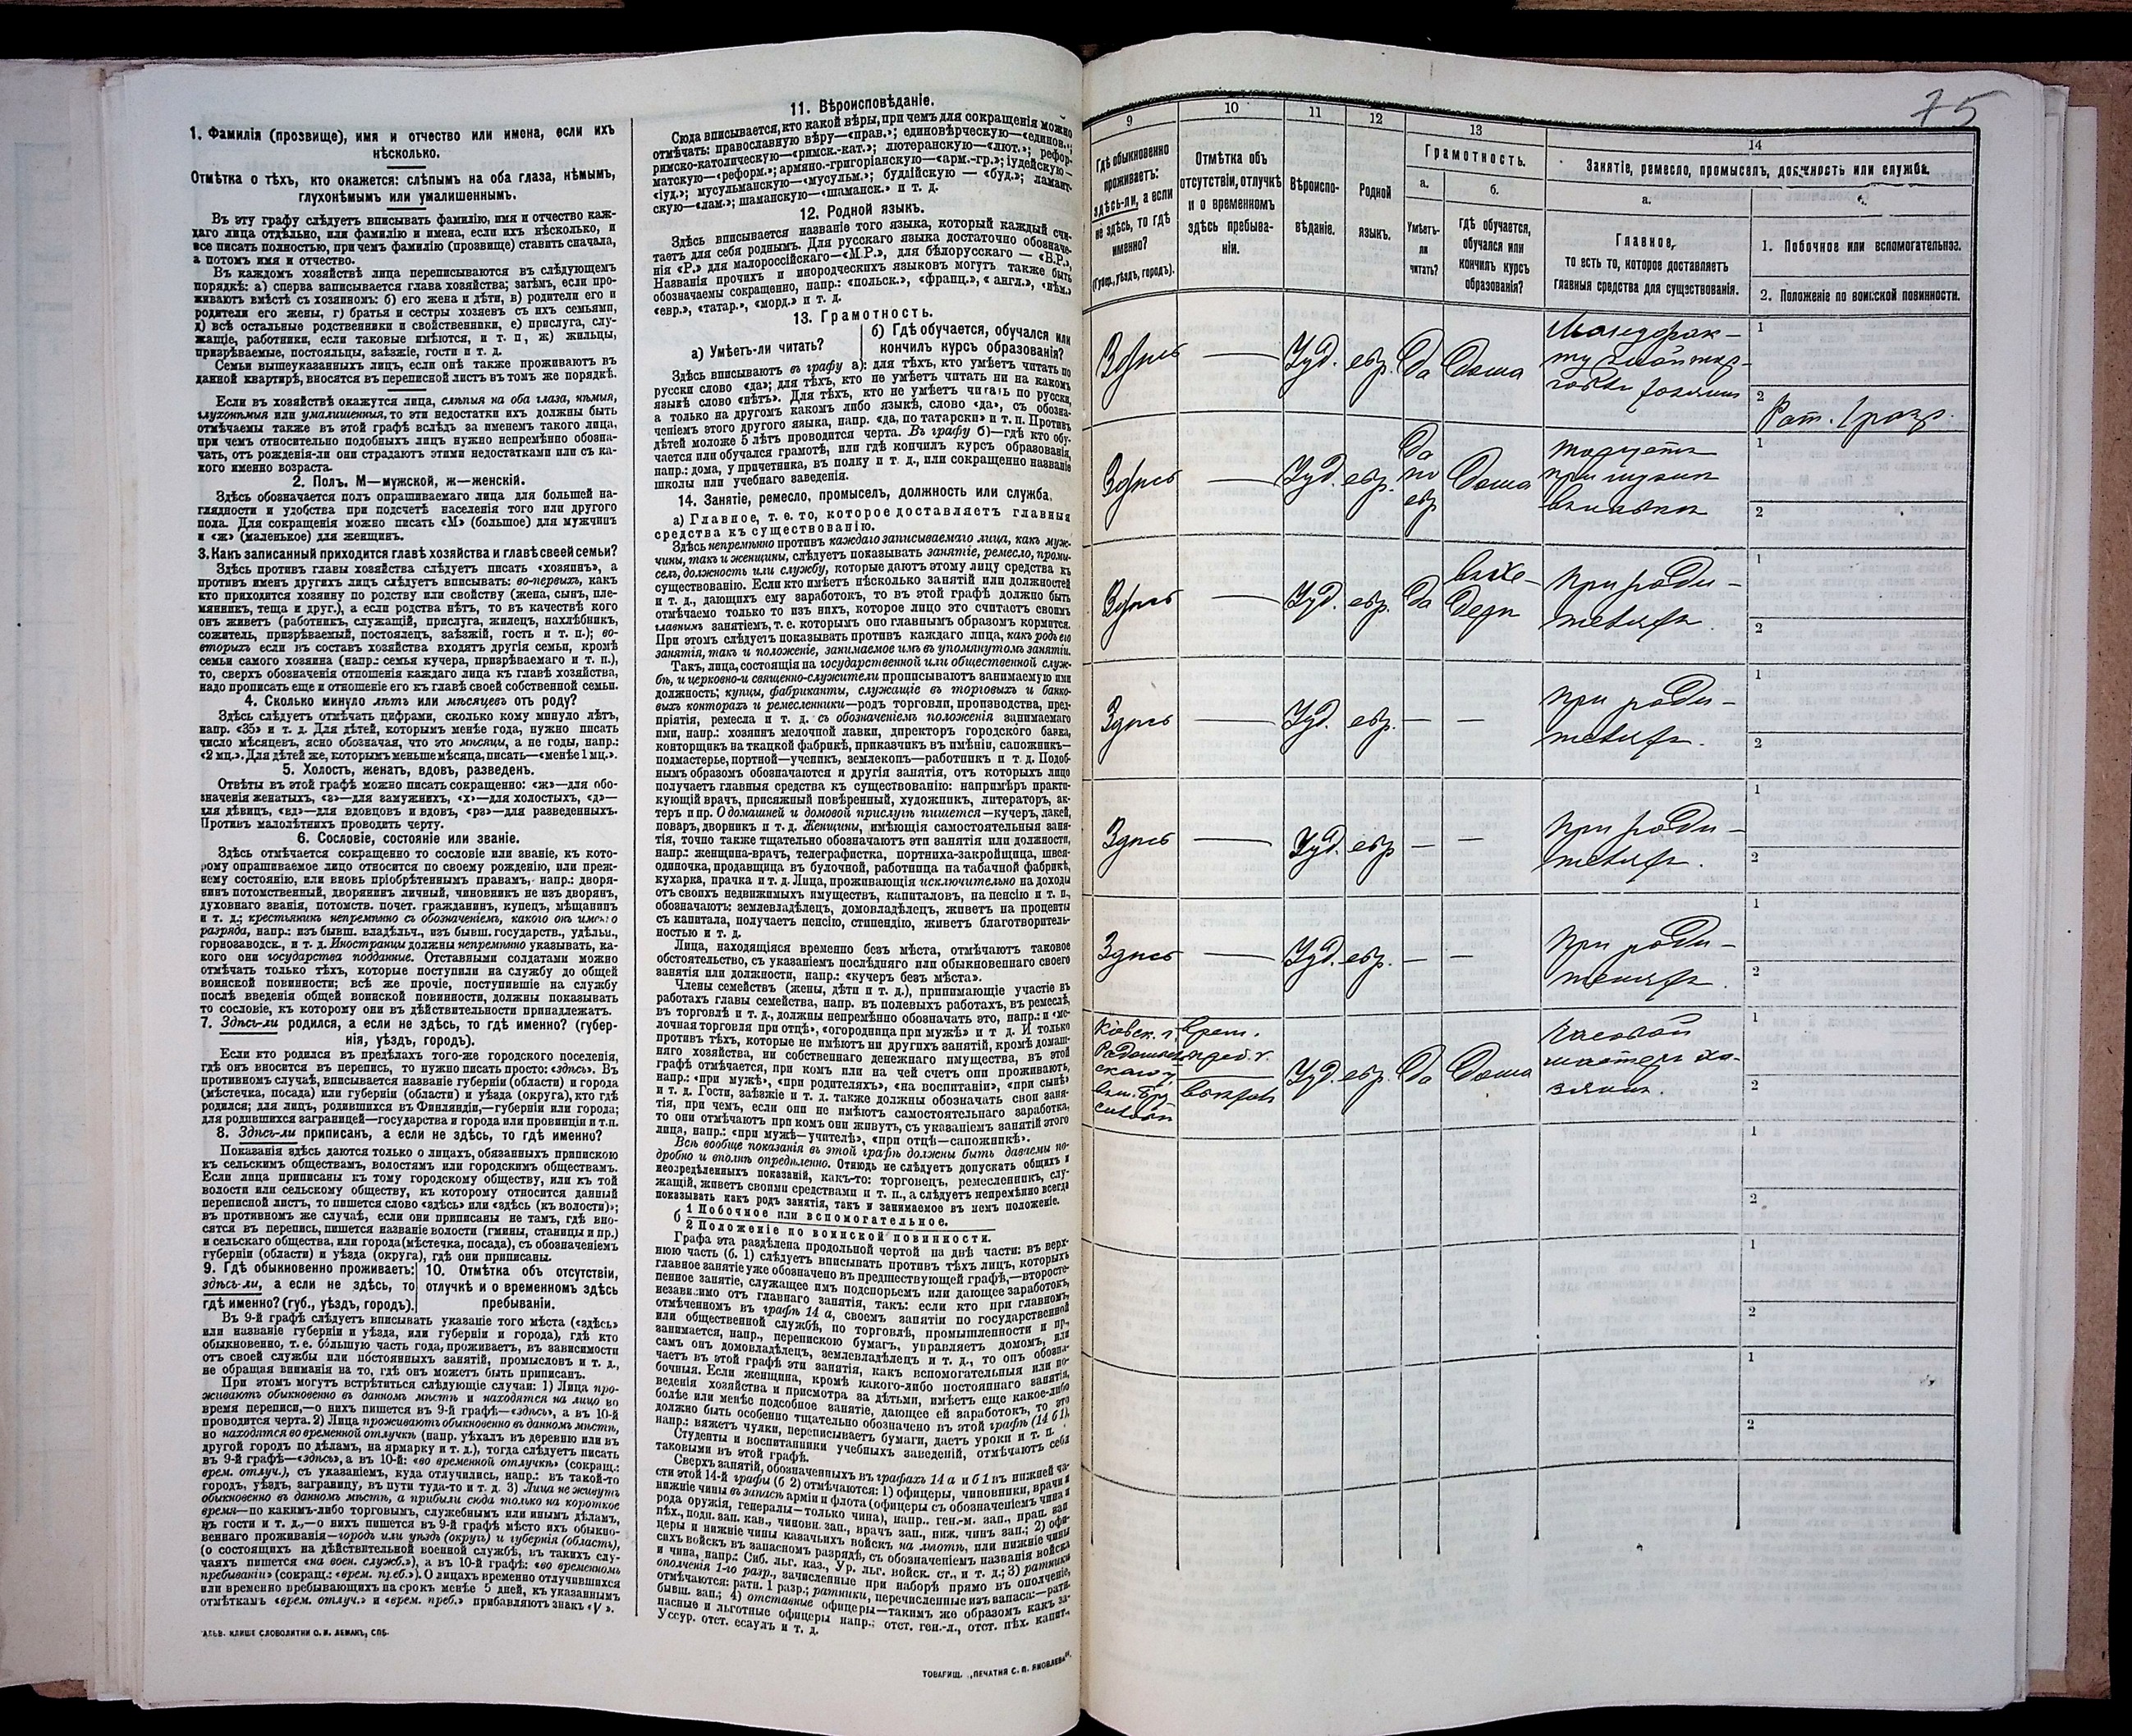 1. Фамилія (прозвище), имя и отчество или имена, если ихъ
нѣсколько.
Отмѣтка о тѣхъ, кто окажется: слѣпымъ на оба глаза, нѣмымъ,
глухонѣмымъ или умалишеннымъ.
Въ эту графу слѣдуетъ вписывать фамилію, имя и отчество каж-
даго лица отдѣльно, или фамилію и имена, если ихъ нѣсколько, и
все писать полностью, при чемъ фамилію (прозвище) ставить сначала,
а потомъ имя и отчество.
Въ каждомъ хозяйствѣ лица переписываются въ слѣдующемъ
порядкѣ: а) сперва записывается глава хозяйства; затѣмъ, если про-
живаютъ вмѣстѣ съ хозяиномъ: б) его жена и дѣти, в) родители его и
родители его жены, г) братья и сестры хозяевъ съ ихъ семьями,
д) всѣ остальные родственники и свойственники, е) прислуга, слу-
жащіе, работники, если таковые имѣются, и т. п, ж) жильцы,
призрѣваемые, постояльцы, заѣзжіе, гости и т. д.
Семьи вышеуказанныхъ лицъ, если онѣ также проживаютъ въ
данной квартирѣ, вносятся въ переписной листъ въ томъ же порядкѣ.
Если въ хозяйствѣ окажутся лица, слѣпыя на оба глаза, нѣмыя,
глухонѣмыя или умалишенныя, то эти недостатки ихъ должны быть
отмѣчаемы также въ этой графѣ вслѣдъ за именемъ такого лица,
при чемъ относительно подобныхъ лицъ нужно непремѣнно обозна-
чать, отъ рожденія-ли они страдаютъ этими недостатками или съ ка-
кого именно возраста.
2. Полъ. М—мужской, ж—женскій.
Здѣсь обозначается полъ опрашиваемаго лица для большей на-
глядности и удобства при подсчетѣ населенія того или другого
пола. Для сокращенія можно писать «М» (большое) для мужчинъ
и «ж» (маленькое) для женщинъ.
3. Какъ записанный приходится главѣ хозяйства и главѣ своей семьи?
Здѣсь противъ главы хозяйства слѣдуетъ писать «хозяинъ», а
противъ именъ другихъ лицъ слѣдуетъ вписывать: во-первыхъ, какъ
кто приходится хозяину по родству или свойству (жена, сынъ, пле-
мянникъ, теща и друг.), а если родства нѣтъ, то въ качествѣ кого
онъ живетъ (работникъ, служащій, прислуга, жилецъ, нахлѣбникъ,
сожитель, призрѣваемый, постоялецъ, заѣзжій, гость и т. п.); во-
вторыхъ если въ составъ хозяйства входятъ другія семьи, кромѣ
семьи самого хозяина (напр.: семья кучера, призрѣваемаго и т. п.),
то, сверхъ обозначенія отношенія каждаго лица къ главѣ хозяйства,
надо прописать еще и отношеніе его къ главѣ своей собственной семьи.
4. Сколько минуло лѣтъ или мѣсяцевъ отъ роду?
Здѣсь слѣдуетъ отмѣчать цифрами, сколько кому минуло лѣтъ,
напр. «35» и т. д. Для дѣтей, которымъ менѣе года, нужно писать
число мѣсяцевъ, ясно обозначая, что это мѣсяцы, а не годы, напр.:
«2 мц.». Для дѣтей же, которымъ меньше мѣсяца, писать—«менѣе 1 мц.».
5. Холостъ, женатъ, вдовъ, разведенъ.
Отвѣты въ этой графѣ можно писать сокращенно: «ж»—для обо-
значенія женатыхъ, «з»—для замужнихъ, «х»—для холостыхъ, «д»—
для дѣвицъ, «вд»—для вдовцовъ и вдовъ, «рз»—для разведенныхъ.
Противъ малолѣтнихъ проводить черту.
6. Сословіе, состояніе или званіе.
Здѣсь отмѣчается сокращенно то сословіе или званіе, къ кото-
рому опрашиваемое лицо относится по своему рожденію, или преж-
нему состоянію, или вновь пріобрѣтеннымъ правамъ, напр.: дворя-
нинъ потомственный, дворянинъ личный, чиновникъ не изъ дворянъ,
духовнаго званія, потомств. почет. гражданинъ, купецъ, мѣщанинъ
и т. д.; крестьянинъ непремѣнно съ обозначеніемъ, какого онъ именно
разряда, напр.: изъ бывш. владѣльч., изъ бывш. государств., удѣльн.,
горнозаводск., и т. д. Иностранцы должны непремѣнно указывать, ка-
кого они государства подданные. Отставными солдатами можно
отмѣчать только тѣхъ, которые поступили на службу до общей
воинской повинности; всѣ же прочіе, поступившіе на службу
послѣ введенія общей воинской повинности, должны показывать
то сословіе, къ которому они въ дѣйствительности принадлежатъ.
7. Здѣсь-ли родился, а если не здѣсь, то гдѣ именно? (губер-
нія, уѣздъ, городъ).
Если кто родился въ предѣлахъ того-же городского поселенія,
гдѣ онъ вносится въ перепись, то нужно писать просто: «здѣсь». Въ
противномъ случаѣ, вписывается названіе губерніи (области) и города
(мѣстечка, посада) или губерніи (области) и уѣзда (округа), кто гдѣ
родился; для лицъ, родившихся въ Финляндіи,—губерніи или города;
для родившихся заграницей—государства и города или провинціи и т.п.
8. Здѣсь-ли приписанъ, а если не здѣсь, то гдѣ именно?
Показанія здѣсь даются только о лицахъ, обязанныхъ припискою
къ сельскимъ обществамъ, волостямъ или городскимъ обществамъ.
Если лица приписаны къ тому городскому обществу, или къ той
волости или сельскому обществу, къ которому относится данный
переписной листъ, то пишется слово «здѣсь» или «здѣсь (къ волости)»;
въ противномъ же случаѣ, если они приписаны не тамъ, гдѣ вно-
сятся въ перепись, пишется названіе волости (гмины, станицы и пр.)
и сельскаго общества, или города (мѣстечка, посада), съ обозначеніемъ
губерніи (области) и уѣзда (округа), гдѣ они приписаны.
9. Гдѣ обыкновенно проживаетъ:
здѣсь-ли, а если не здѣсь, то
гдѣ именно? (губ., уѣздъ, городъ).
10. Отмѣтка объ отсутствіи,
отлучкѣ и о временномъ здѣсь
пребываніи.
Въ 9-й графѣ слѣдуетъ вписывать указаніе того мѣста («здѣсь»
или названіе губерніи и уѣзда, или губерніи и города), гдѣ кто
обыкновенно, т. е. бо́льшую часть года, проживаетъ, въ зависимости
отъ своей службы или постоянныхъ занятій, промысловъ и т. д.,
не обращая вниманія на то, гдѣ онъ можетъ быть приписанъ.
При этомъ могутъ встрѣтиться слѣдующіе случаи: 1) Лица про-
живаютъ обыкновенно въ данномъ мѣстѣ и находятся на лицо во
время переписи,—о нихъ пишется въ 9-й графѣ—«здѣсь», а въ 10-й
проводится черта. 2) Лица проживаютъ обыкновенно въ данномъ мѣстѣ,
но находятся во временной отлучкѣ (напр. уѣхалъ въ деревню или въ
другой городъ по дѣламъ, на ярмарку и т. д.), тогда слѣдуетъ писать
въ 9-й графѣ—«здѣсь», а въ 10-й: «во временной отлучкѣ» (сокращ.:
врем. отлуч.), съ указаніемъ, куда отлучились, напр.: въ такой-то
городъ, уѣздъ, заграницу, въ пути туда-то и т. д. 3) Лица не живутъ
обыкновенно въ данномъ мѣстѣ, а прибыли сюда только на короткое
время—по какимъ-либо торговымъ, служебнымъ или инымъ дѣламъ,
въ гости и т. д.,—о нихъ пишется въ 9-й графѣ мѣсто ихъ обыкно-
веннаго проживанія—городъ или уѣздъ (округъ) и губернія (область),
(о состоящихъ на дѣйствительной военной службѣ, въ такихъ слу-
чаяхъ пишется «на воен. служб.»), а въ 10-й графѣ: «во временномъ
пребываніи» (сокращ.: «врем. преб.»). О лицахъ временно отлучившихся
или временно пребывающихъ на срокъ менѣе 5 дней, къ указаннымъ
отмѣткамъ «врем. отлуч.» и «врем. преб.» прибавляютъ знакъ «V».
КЛИШЕ СЛОВОЛИТНИ О. И. ЛЕМАНЪ, СПБ.
11. Вѣроисповѣданіе.
Сюда вписывается, кто какой вѣры, при чемъ для сокращенія можно
отмѣчать: православную вѣру—«прав.»; единовѣрческую—«единов.»;
римско-католическую—«римск.-кат.»; лютеранскую—«лют.»; рефор-
матскую—«реформ.»; армяно-григоріанскую—«арм.-гр.»; іудейскую—
«іуд.»; мусульманскую—«мусульм.»; буддійскую — «буд.»; ламаит-
скую—«лам.»; шаманскую—«шаманск.» и т. д.
12. Родной языкъ.
Здѣсь вписывается названіе того языка, который каждый счи-
таетъ для себя роднымъ. Для русскаго языка достаточно обозначе-
нія «Р.» для малороссійскаго—«М.Р.», для бѣлорусскаго — «Б.Р.»,
Названія прочихъ и инородческихъ языковъ могутъ также быть
обозначаемы сокращенно, напр.: «польск.», «франц.», «англ.», «нѣм.»
«евр.», «татар.», «морд.» и т. д.
13. Грамотность.
а) Умѣетъ-ли читать?
б) Гдѣ обучается, обучался или
кончилъ курсъ образованія?
Здѣсь вписываютъ въ графу а): для тѣхъ, кто умѣетъ читать по
русски слово «да»; для тѣхъ, кто не умѣетъ читать ни на какомъ
языкѣ слово «нѣтъ». Для тѣхъ, кто не умѣетъ читать по русски,
а только на другомъ какомъ либо языкѣ, слово «да», съ обозна-
ченіемъ этого другого языка, напр. «да, по татарски» и т. п. Противъ
дѣтей моложе 5 лѣтъ проводится черта. Въ графу б)—гдѣ кто обу-
чается или обучался грамотѣ, или гдѣ кончилъ курсъ образованія,
напр.: дома, у причетника, въ полку и т. д., или сокращенно названіе
школы или учебнаго заведенія.
14. Занятіе, ремесло, промыселъ, должность или служба.
а) Главное, т. е. то, которое доставляетъ главныя
средства къ существованію.
Здѣсь непремѣнно противъ каждаго записываемаго лица, какъ муж-
чины, такъ и женщины, слѣдуетъ показывать занятіе, ремесло, промы-
селъ, должность или службу, которые даютъ этому лицу средства къ
существованію. Если кто имѣетъ нѣсколько занятій или должностей
и т. д., дающихъ ему заработокъ, то въ этой графѣ должно быть
отмѣчаемо только то изъ нихъ, которое лицо это считаетъ своимъ
главнымъ занятіемъ, т. е. которымъ оно главнымъ образомъ кормится.
При этомъ слѣдуетъ показывать противъ каждаго лица, какъ родъ его
занятія, такъ и положеніе, занимаемое имъ въ упомянутомъ занятіи.
Такъ, лица, состоящія на государственной или общественной служ-
бѣ, и церковно-и священно-служители прописываютъ занимаемую ими
должность; купцы, фабриканты, служащіе въ торговыхъ и банко-
выхъ конторахъ и ремесленники—родъ торговли, производства, пред-
пріятія, ремесла и т. д. съ обозначеніемъ положенія занимаемаго
ими, напр.: хозяинъ мелочной лавки, директоръ городского банка,
конторщикъ на ткацкой фабрикѣ, приказчикъ въ имѣніи, сапожникъ—
подмастерье, портной—ученикъ, землекопъ—работникъ и т. д. Подоб-
нымъ образомъ обозначаются и другія занятія, отъ которыхъ лицо
получаетъ главныя средства къ существованію: напримѣръ практи-
кующій врачъ, присяжный повѣренный, художникъ, литераторъ, ак-
теръ и пр. О домашней и домовой прислугѣ пишется—кучеръ, лакей,
поваръ, дворникъ и т. д. Женщины, имѣющія самостоятельныя заня-
тія, точно также тщательно обозначаютъ эти занятія или должности,
напр.: женщина-врачъ, телеграфистка, портниха-закройщица, швея-
одиночка, продавщица въ булочной, работница на табачной фабрикѣ,
кухарка, прачка и т. д. Лица, проживающія исключительно на доходы
отъ своихъ недвижимыхъ имуществъ, капиталовъ, на пенсію и т. п.,
обозначаютъ: землевладѣлецъ, домовладѣлецъ, живетъ на проценты
съ капитала, получаетъ пенсію, стипендію, живетъ благотворитель-
ностью и т. д.
Лица, находящіяся временно безъ мѣста, отмѣчаютъ таковое
обстоятельство, съ указаніемъ послѣдняго или обыкновеннаго своего
занятія или должности, напр.: «кучеръ безъ мѣста».
Члены семействъ (жены, дѣти и т. д.), принимающіе участіе въ
работахъ главы семейства, напр. въ полевыхъ работахъ, въ ремеслѣ,
въ торговлѣ и т. д., должны непремѣнно обозначать это, напр.: и «ме-
лочная торговля при отцѣ», «огородница при мужѣ» и т д. И только
противъ тѣхъ, которые не имѣютъ ни другихъ занятій, кромѣ домаш-
няго хозяйства, ни собственнаго денежнаго имущества, въ этой
графѣ отмѣчается, при комъ или на чей счетъ они проживаютъ,
напр.: «при мужѣ», «при родителяхъ», «на воспитаніи», «при сынѣ»
и т. д. Гости, заѣзжіе и т. д. также должны обозначать свои заня-
тія, при чемъ, если они не имѣютъ самостоятельнаго заработка,
то они отмѣчаютъ при комъ они живутъ, съ указаніемъ занятій этого
лица, напр.: «при мужѣ—учителѣ», «при отцѣ—сапожникѣ».
Всѣ вообще показанія въ этой графѣ должны быть даваемы по-
дробно и вполнѣ опредѣленно. Отнюдь не слѣдуетъ допускать общихъ и
неопредѣленныхъ показаній, какъ-то: торговецъ, ремесленникъ, слу-
жащій, живетъ своими средствами и т. п., а слѣдуетъ непремѣнно всегда
показывать какъ родъ занятія, такъ и занимаемое въ немъ положеніе.
б 1 Побочное или вспомогательное.
2 Положеніе по воинской повинности.
Графа эта раздѣлена продольной чертой на двѣ части: въ верх-
нюю часть (б. 1) слѣдуетъ вписывать противъ тѣхъ лицъ, которыхъ
главное занятіе уже обозначено въ предшествующей графѣ,—второсте-
пенное занятіе, служащее имъ подспорьемъ или дающее заработокъ,
независимо отъ главнаго занятія, такъ: если кто при главномъ,
отмѣченномъ въ графѣ 14 а, своемъ занятіи по государственной
или общественной службѣ, по торговлѣ, промышленности и пр.,
занимается, напр., перепискою бумагъ, управляетъ домомъ, или
самъ онъ домовладѣлецъ, землевладѣлецъ и т. д., то онъ обозна-
чаетъ въ этой графѣ эти занятія, какъ вспомогательныя или по-
бочныя. Если женщина, кромѣ какого-либо постояннаго занятія,
веденія хозяйства и присмотра за дѣтьми, имѣетъ еще какое-либо
болѣе или менѣе подсобное занятіе, дающее ей заработокъ, то это
должно быть особенно тщательно обозначено въ этой графѣ (14 б 1),
напр.: вяжетъ чулки, переписываетъ бумаги, даетъ уроки и т. п.
Студенты и воспитанники учебныхъ заведеній, отмѣчаютъ себя
таковыми въ этой графѣ.
Сверхъ занятій, обозначенныхъ въ графахъ 14 а и б 1 въ нижней ча-
сти этой 14-й графы (б 2) отмѣчаются: 1) офицеры, чиновники, врачи и
нижніе чины въ запасѣ арміи и флота (офицеры съ обозначеніемъ чина и
рода оружія, генералы—только чина), напр.. ген.-м. зап., прап. зап
пѣх., подп. зап. кав., чиновн. зап., врачъ зап., ниж. чинъ зап.; 2) офи-
церы и нижніе чины казачьихъ войскъ на льготѣ, или нижніе чины
сихъ войскъ въ запасномъ разрядѣ, съ обозначеніемъ названія войска
и чина, напр.: Сиб. льг. каз., Ур. льг. войск. ст., и т. д.; 3) ратники
ополченія 1-го разр., зачисленные при наборѣ прямо въ ополченіе,
отмѣчаются: ратн. 1 разр.; ратники, перечисленные изъ запаса:—ратн.
бывш. зап.; 4) отставные офицеры—такимъ же образомъ какъ за-
пасные и льготные офицеры напр.: отст. ген.-л., отст. пѣх. капит.,
Уссур. отст. есаулъ и т. д.
ТОВАРИЩ. „ПЕЧАТНЯ С. П. ЯКОВЛЕВА“.
75
9 10 11 12 13 14
Гдѣ обыкновенно
проживаетъ:
здѣсь-ли, а если
не здѣсь, то гдѣ
именно?
(Губер., уѣздъ, городъ).
Отмѣтка объ
отсутствіи, отлучкѣ
и о временномъ
здѣсь пребыва-
ніи.
Вѣроиспо-
вѣданіе.
Родной
языкъ.
Грамотность.
а.
Умѣетъ-
ли
читать?
б.
Гдѣ обучается,
обучался или
кончилъ курсъ
образованія?
Занятіе, ремесло, промыселъ, должность или служба.
а.
Главное,
то есть то, которое доставляетъ
главныя средства для существованія.
1. Побочное или вспомогательное.
2. Положеніе по воинской повинности.
Здѣсь — Іуд. евр. Да Дома
хозяинъ
1
2
Рат. 1 разр.
Здѣсь — Іуд. евр. Да
по
евр Дома
торгуетъ
при мужѣ
1
2
Здѣсь — Іуд. евр. Да
въ хе-
дерѣ
при роди-
теляхъ.
1
2
Здѣсь — Іуд. евр. — —
при роди-
теляхъ.
1
2
Здѣсь — Іуд. евр — —
при роди-
теляхъ.
1
2
Здѣсь — Іуд. евр. — —
при роди-
теляхъ.
1
2
Кіевск. г.
скаго у.
врем.
преб. v.
Іуд. евр. Да Дома
часовой
мастеръ хо-
зяинъ.
1
2
1
2
1
2
1
2